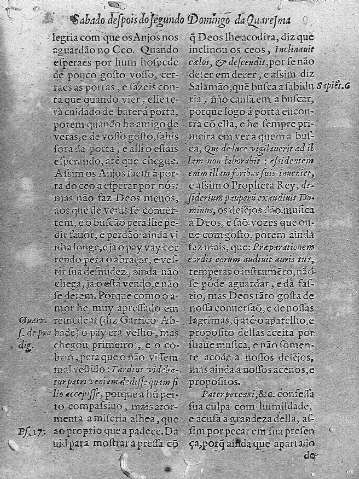 Sabado despois do segundo Domingo da Quaresma
legria com que os Anjos nos
aguardão no Ceo. Quando
esperaes por hum hospede
de pouco gosto vosso, cer-
raes as portas, e fazeis con-
ta que quando vier, elle te-
rá cuidado de bater á porta,
porem quando he amigo de
veras, e de vosso gosto, sahis
fora da porta, e alli o estais
esperando, até que chegue.
Assim os Anjos saem á por-
ta do ceo a esperar por nos:
mas não faz Deos menos,
aos que de veras se conver-
tem, e o buscão pera lhe pe-
dir favor, e perdão: ainda vi-
nha longe, e ja o pay vay cor-
rendo pera o abraçar, e ves-
tir sua de nudez, ainda não
chega, ja o està vendo, e não
se detem. Porque como o a-
mor he muy apressado em
remedear (diz Guerrico Ab-
bade) o pay era velho, mas
chegou primeiro, e o co-
brio, pera que o não vissem
mal vestido: Tardius videba-
tur pater veniam dedisse quam fi-
lius accepisse, porque a hũ per-
to compassivo, mais ator-
menta a miseria alhea, que
ao proprio que a padece. Da
uid para mostrar a pressa cõ
Guerr.
s. de pro
dig.
Ps. 17.
q̃ Deos lhe acodira, diz que
inclinou os ceos, Inclinauit
cælos, & descendit, por se não
deter em decer, e assim diz
Salamão, que busca a sabidu
ria, não cansa em a buscar,
porque logo á porta encon-
tra cõ ella, e he sempre pri-
meira em ver a quem a bus-
ca, Qui de luce vigilauerit ad il
lam non laborabit: assidentem
enim illam foribus suis inueniet,
e assim o Propheta Rey, de-
siderium pauperum exaudiuit Do-
minus, os desejos são musica
a Deos, e são vozes que ou-
ve com gosto, porem ainda
faz mais, que: Præparationem
cordis eorum audiuit auris tua,
temperas o instrumento, não
se pode aguardar, e da fa-
stio, mas Deos tanto gosta de
nossa conversão, e de nossas
lagrimas, q̃ até o aparelho, e
proposito dellas aceita por
suaue musica, e não somen-
te acode a nossos desejos,
mas ainda a nossos acenos, e
propositos.
Pater peccaui, &c. confessa
sua culpa com humildade,
e acusa a grandeza della, as-
sim por pecar em sua presen
ça, porq̃ ainda que apartado
Sapiẽt. 6
do